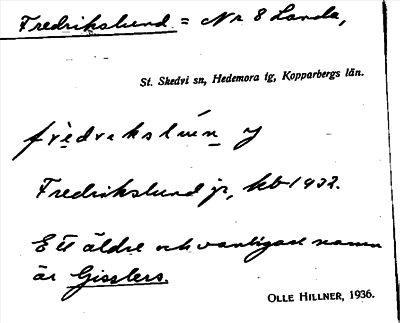 Fredrikslund = Nr 8 Landa,
St. Skedvi sn, Hedemora tg, Kopparbergs län.
Fredrikslund jr, kb 1932.
Ett äldre och vanligare namn
är Gisslers.
OLLE HILLNER, 1936.